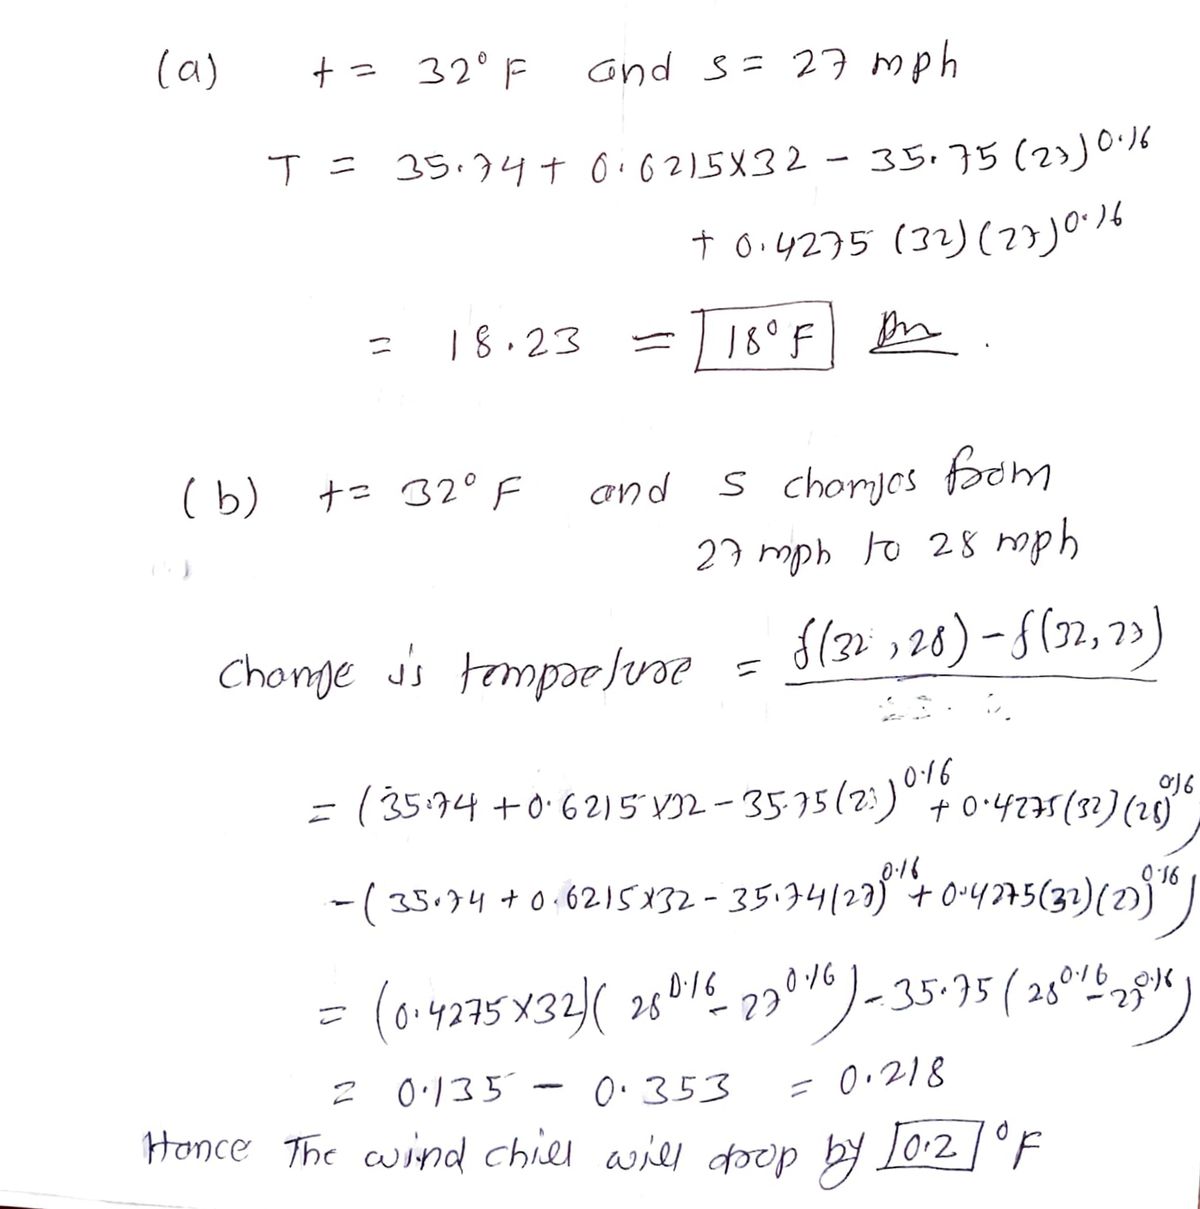 (a) t = 32° F and s = 27 mph
T = 35.74 + 0.6215X32 - 35.75 (27)^0.16
+ 0.4275 (32) (27)^0.16
= 18.23 = 18° F Ans.
(b) t = 32° F and s changes from
27 mph to 28 mph
Change is temprature = f(32, 28) - f(32, 27)
= (35.74 + 0.6215 X32 - 35.75 (28)^0.16 + 0.4275 (32) (28)^0.16)
- (35.74 + 0.6215X32 - 35.74 (27)^0.16 + 0.4275(32) (27)^0.16)
= (0.4275 X32)( 28^0.16 - 27^0.16) - 35.75 (28^0.16 - 27^0.16)
= 0.135 - 0.353 = 0.218
Hence The wind chill will drop by 0.2 °F